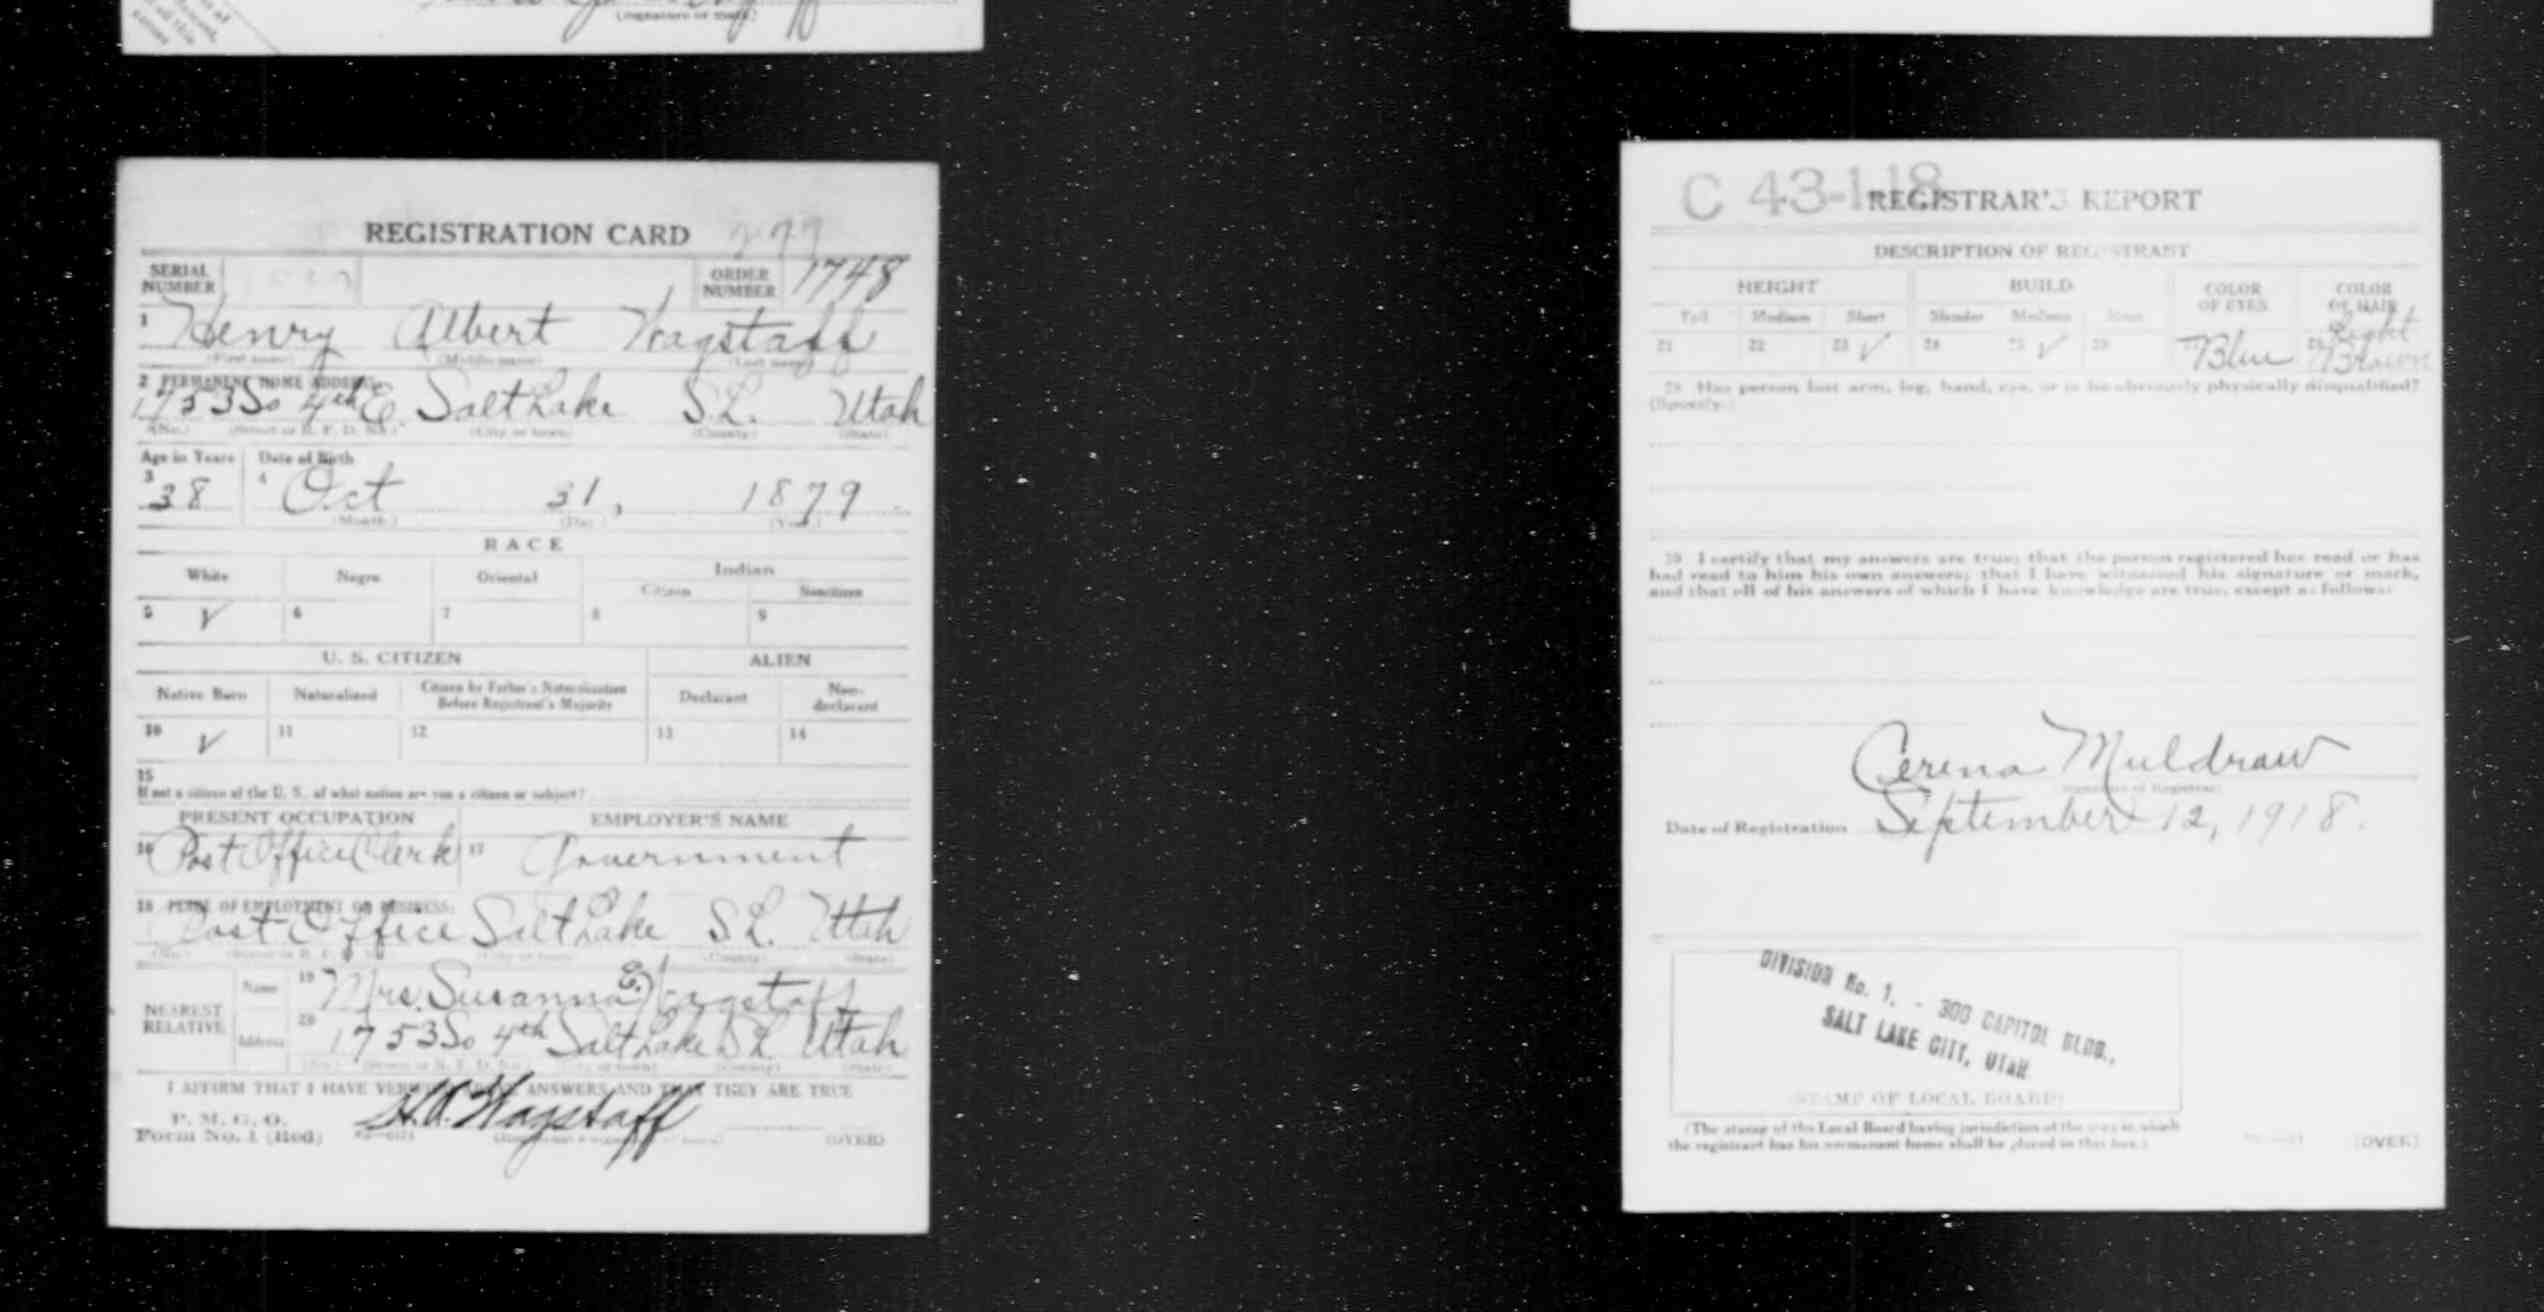 (Signature of
REGISTRATION CARD
SERIAL NUMBER
ORDER NUMBER 1748
1 Henry Albert Wagstaff
(First name) (Middle name) (Last name)
2 PERMANENT HOME ADDRESS:
1753 So 4th E. Salt Lake S.L. Utah
(No.) (Street or R. F. D. No.) (City or town) (County) (State)
Age in Years Date of Birth
3 38 4 Oct 31, 1879
(Month.) (Day.) (Year.)
RACE
White Negro Oriental Indian
Citizen Noncitizen
5 ✓ 6 7 8 9
U. S. CITIZEN ALIEN
Native Born Naturalized Citizen by Father's Naturalization Before Registrant's Majority Declarant Non-declarant
10 ✓ 11 12 13 14
15
If not a citizen of the U. S., of what nation are you a citizen or subject?
PRESENT OCCUPATION EMPLOYER'S NAME
16 Post Office Clerk 17 Government
18 PLACE OF EMPLOYMENT OR BUSINESS:
Post Office Salt Lake S.L. Utah
(No.) (Street or R. F. D. No.) (City or town) (County) (State)
NEAREST RELATIVE
Name 19 Mrs. Susanna E. Wagstaff
Address 20 1753 So 4th Salt Lake S L Utah
(No.) (Street or R. F. D. No.) (City or town) (County) (State)
I AFFIRM THAT I HAVE VERIFIED ABOVE ANSWERS AND THAT THEY ARE TRUE
P. M. G. O.
Form No. 1 (Red) H.A. Wagstaff (OVER)
C 43-1-18 REGISTRAR'S REPORT
DESCRIPTION OF REGISTRANT
HEIGHT BUILD COLOR OF EYES COLOR OF HAIR
Tall Medium Short Slender Medium Stout
21 22 23 ✓ 24 25 ✓ 26 Blue 28 Light Brown
29 Has person lost arm, leg, hand, eye, or is he obviously physically disqualified?
(Specify.)
30 I certify that my answers are true; that the person registered has read or has
had read to him his own answers; that I have witnessed his signature or mark,
and that all of his answers of which I have knowledge are true, except as follows:
Cerena Muldraw
(Signature of Registrar)
Date of Registration September 12, 1918.
DIVISION No. 1, - 300 CAPITOL BLDG.,
SALT LAKE CITY, UTAH
(STAMP OF LOCAL BOARD)
(The stamp of the Local Board having jurisdiction of the area in which
the registrant has his permanent home shall be placed in this box.)
(OVER)